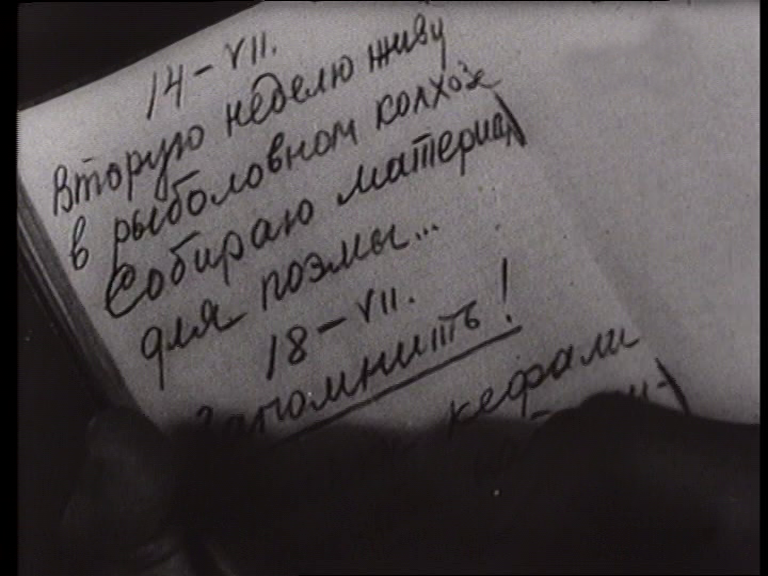 14-VII.
Вторую неделю живу
в рыболовном колхозе
Собираю материал
для поэмы...
18-VII.
Запомнить!
кефали